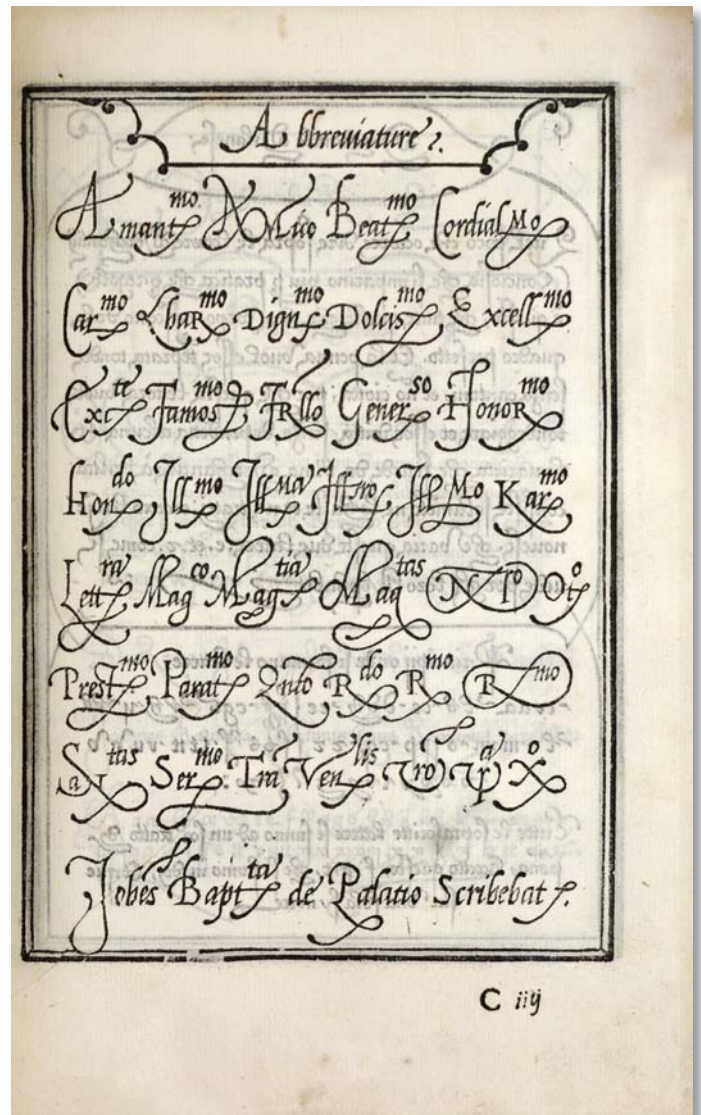 Abbreviature.
Amantmo. AMuo Beatmo CordialMo
Carmo CbaRmo Dignmo Dolcismo Excellmo
Excte Famosmo FRllo Generso HonoRmo
Hondo Illmo IllMa Illtro IllMo Karmo
Lettra Magco Magtia Magtas Nro Oto
Prestmo Paratmo Qnto Rdo Rmo Rmo
Satas Sermo Tra Venlis Vro
Johes Baptta de Palatio Scribebat.
C iiij